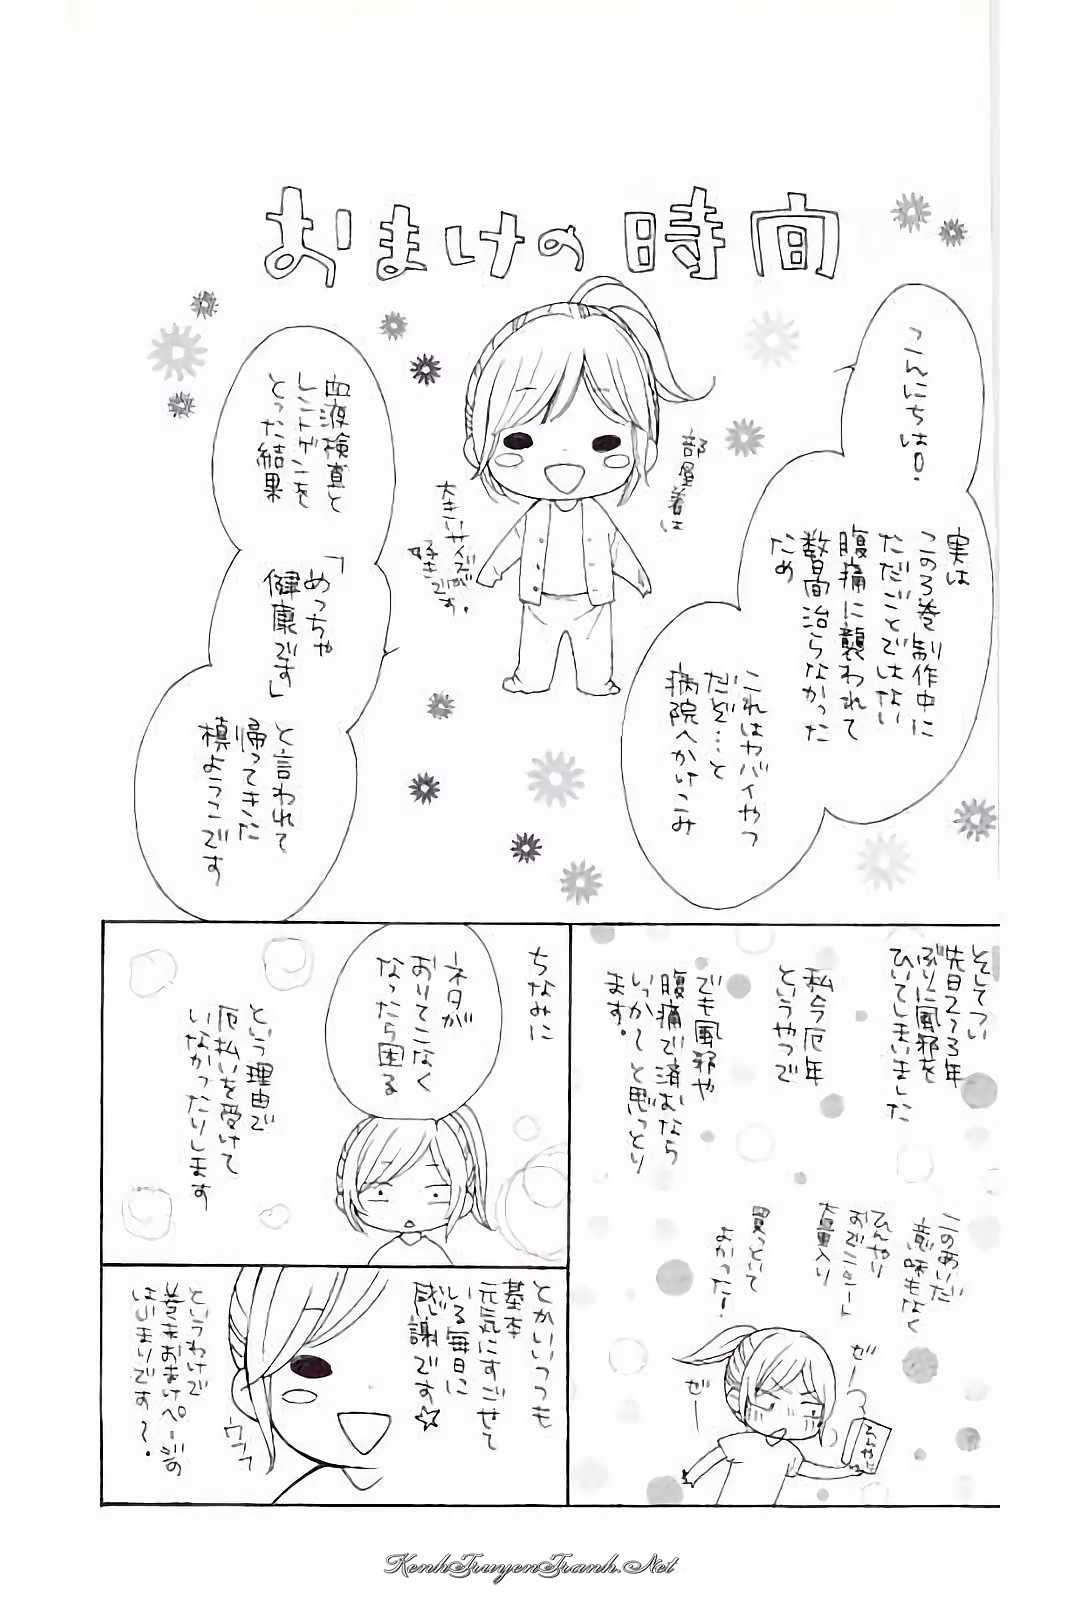 おまけの時間
こんにちは!
実は
この3巻制作中に
ただごとではない
腹痛に襲われて
数日間治らなかった
ため
これはヤバイやつ
だぞ…と
病院へかけこみ
部屋着は
大きいサイズが
好きです。
血液検査と
レントゲンを
とった結果
「めっちゃ
健康です」
と言われて
帰ってきた
槙ようこです
そしてつい
先日2〜3年
ぶりに風邪を
ひいてしまいました
私今厄年
というやつで
でも風邪や
腹痛で済むなら
いっかて思っとり
ます。
このあいだ
意味もなく
ひんやり
おでこシート
大量入り
買っといて
よかった!
ゼー
ゼー
ひんやり
ちなみに
ネタが
おりてこなく
なったら困る
という理由で
厄払いを受けて
いなかったりします
とかいいつつも
基本
元気にすごせて
いる毎日に
感謝です☆
ウフフ
というわけで
巻末おまけページの
はじまりです〜。
KenhTruyenTranh.Net